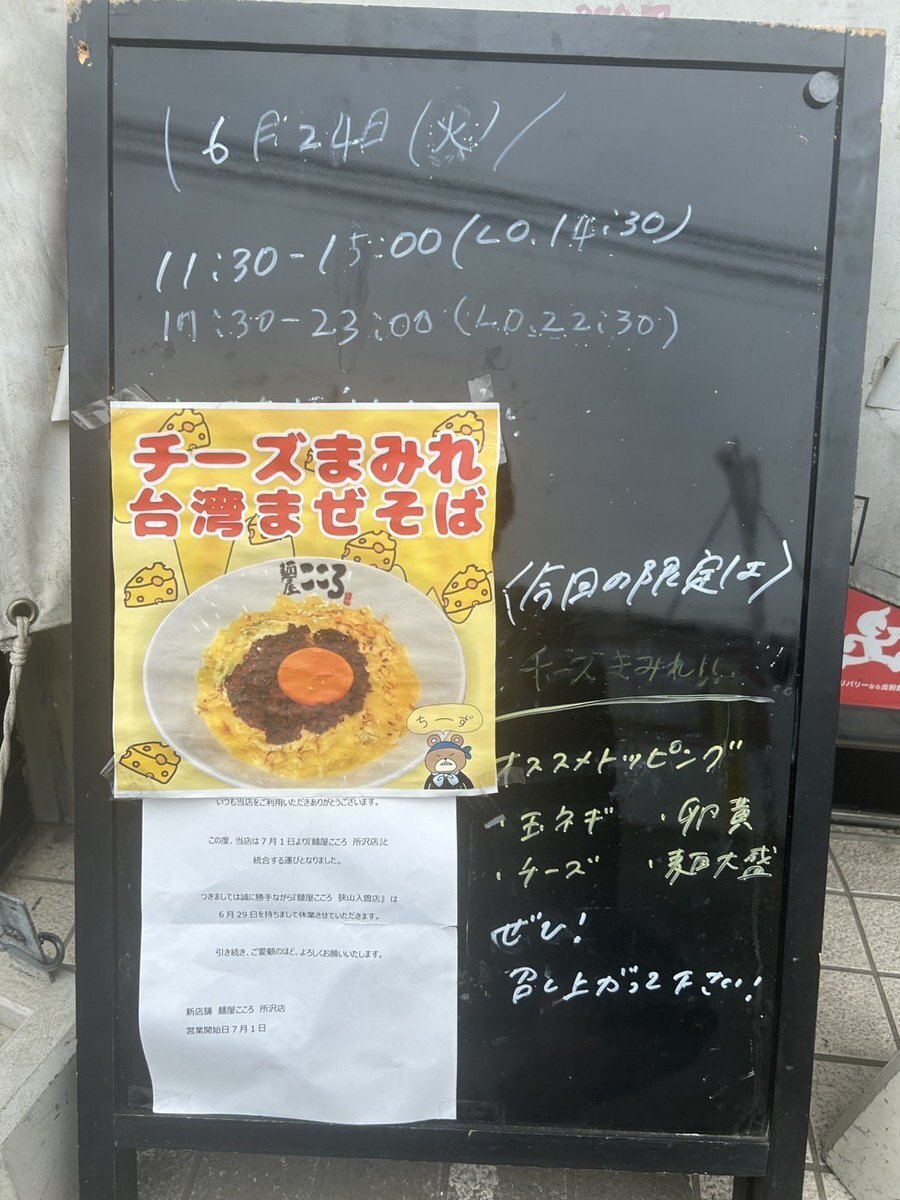 6月24日(火)
11:30-15:00(LO.14:30)
17:30-23:00(LO.22:30)
チーズまみれ
台湾まぜそば
麺屋こころ
ちーず
今回の限定は
チーズまみれ!!
オススメトッピング
・玉ネギ ・卵黄
・チーズ ・麺大盛
ぜひ!
召し上がって下さい!
いつも当店をご利用いただきありがとうございます。
この度、当店は7月1日より『麺屋こころ 所沢店』と
統合する運びとなりました。
つきましては誠に勝手ながら『麺屋こころ 狭山入曽店』は
6月29日を持ちまして休業させていただきます。
引き続き、ご愛顧のほど、よろしくお願いいたします。
新店舗 麺屋こころ 所沢店
営業開始日7月1日
リバリーなら出前館